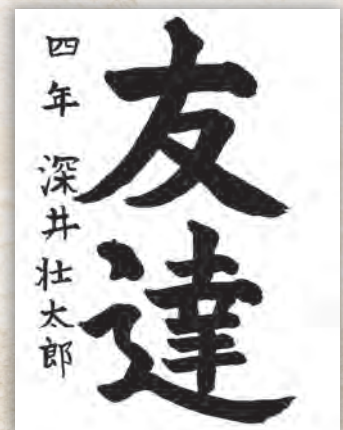 友達
四年 深井壮太郎